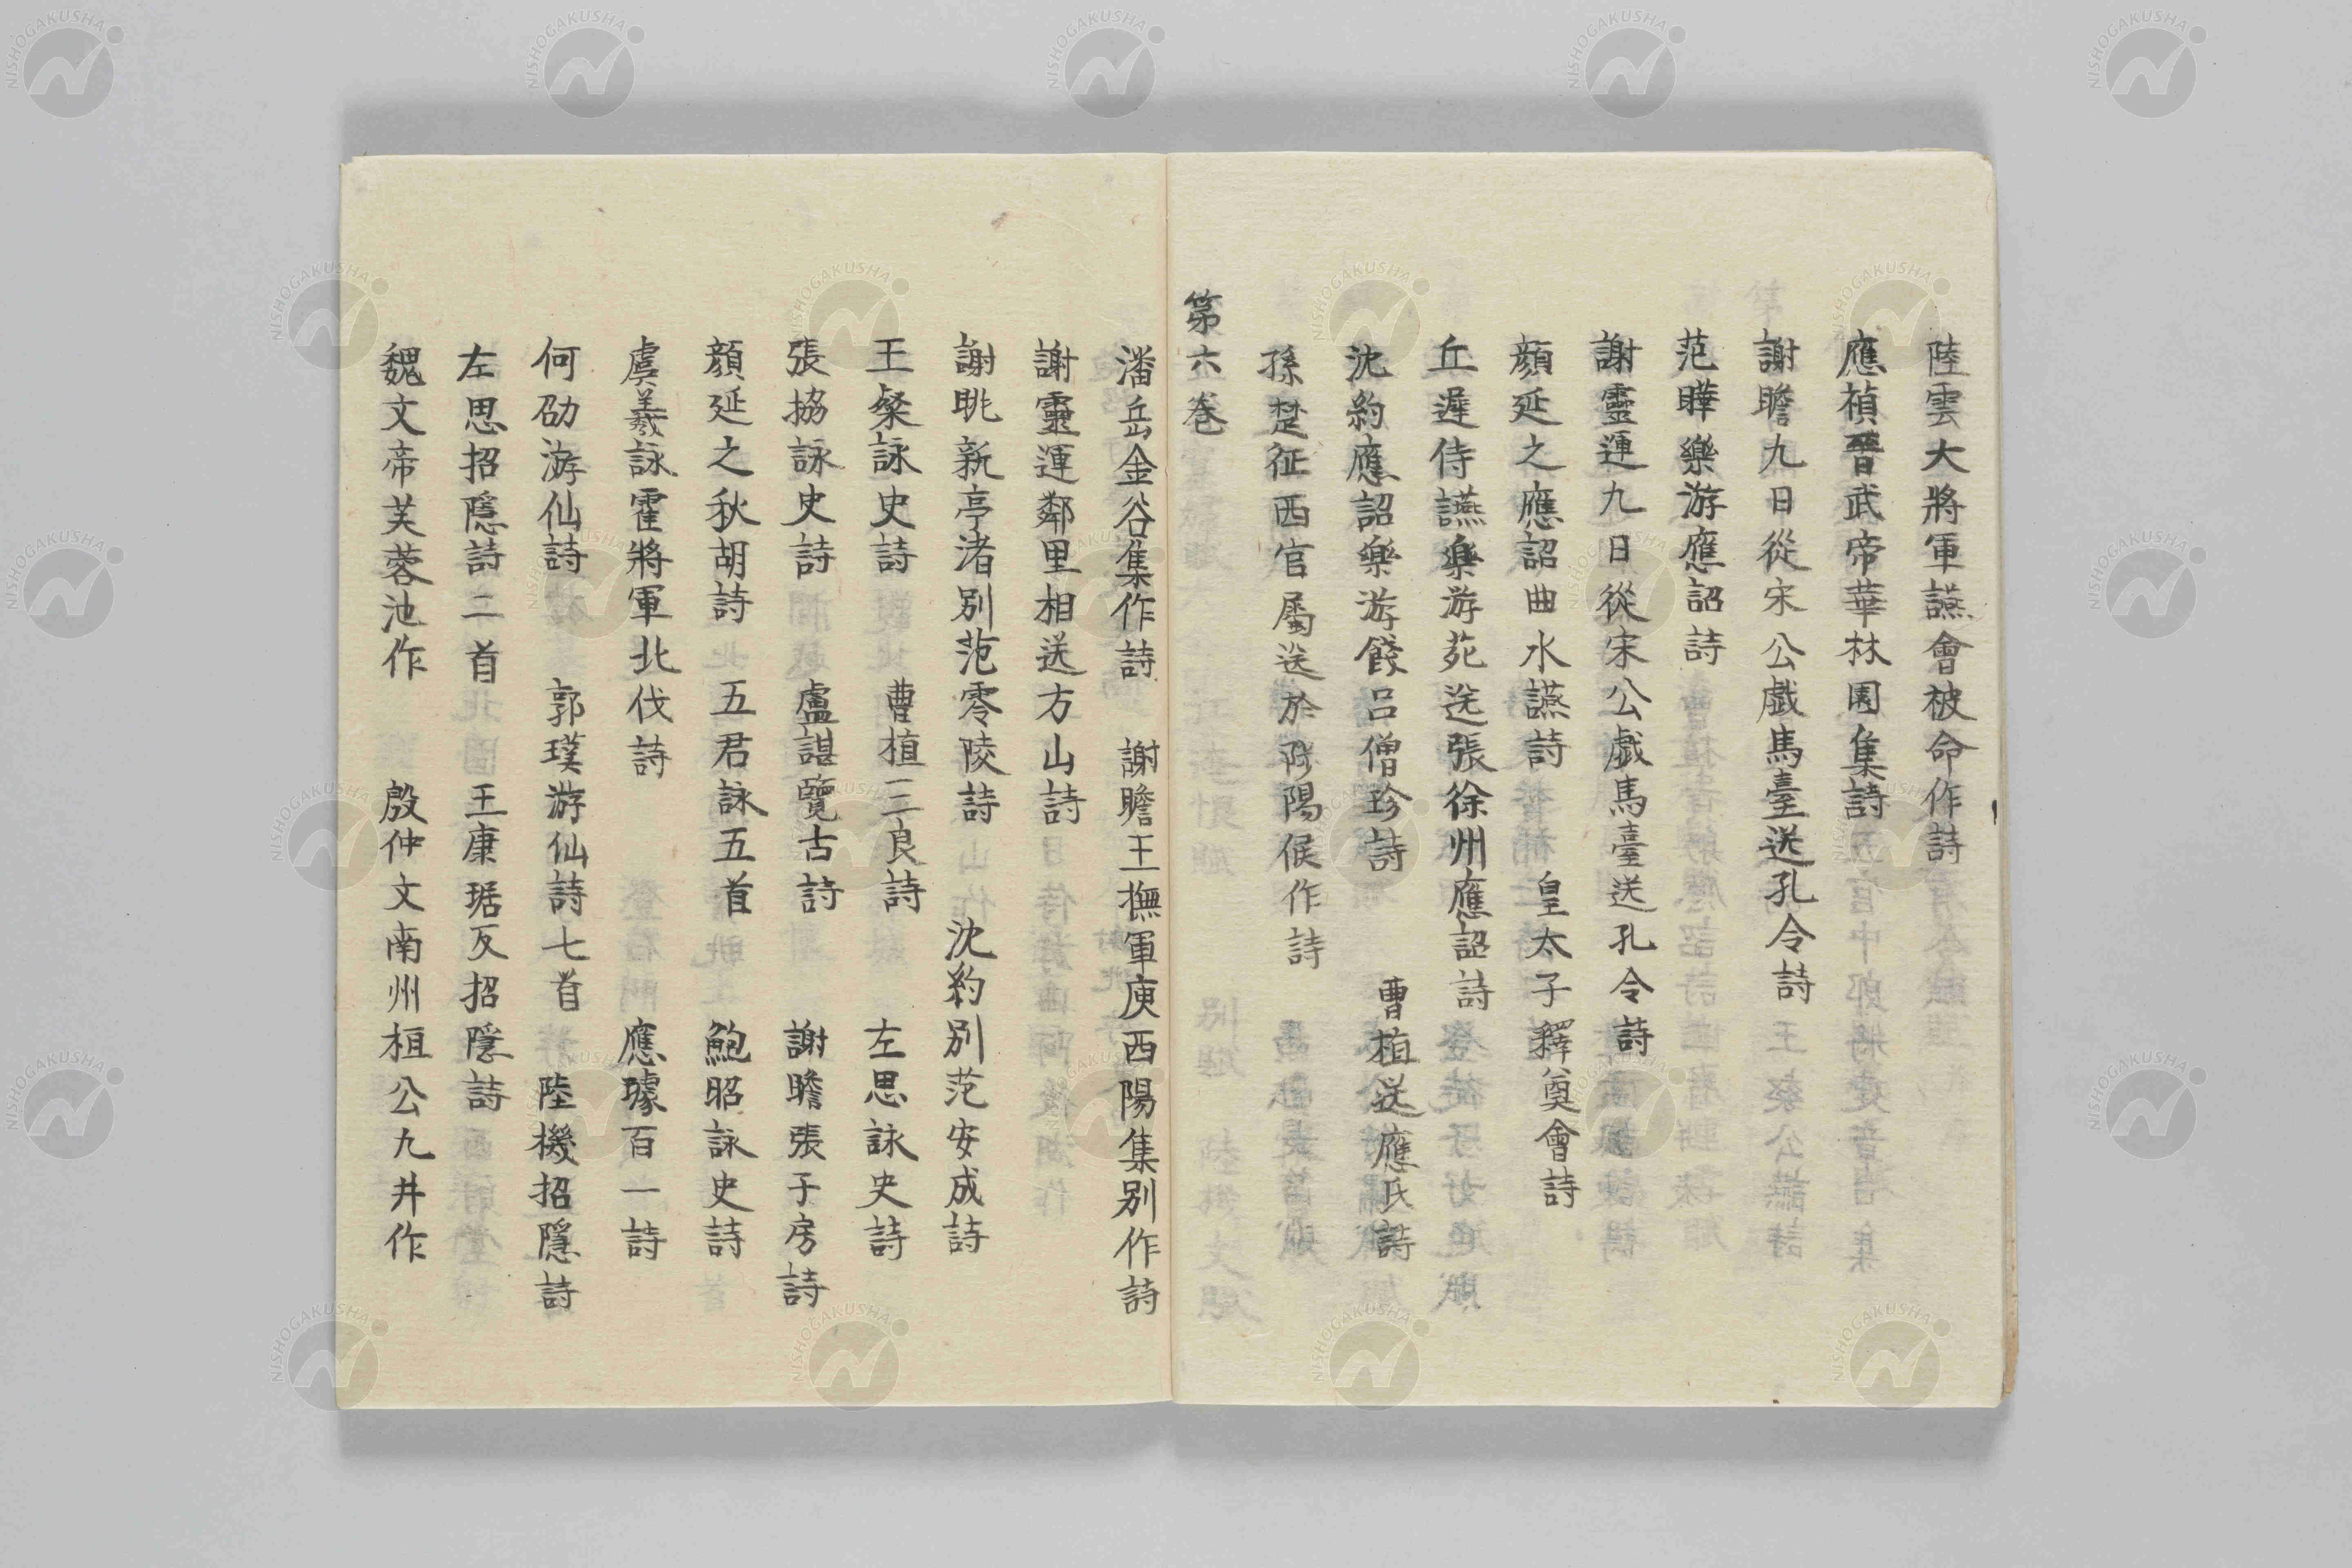 陸雲大將軍讌會被命作詩
應禎晉武帝華林園集詩
謝瞻九日從宋公戲馬臺送孔令詩
范曄樂游應詔詩
謝靈運九日從宋公戲馬臺送孔令詩
顏延之應詔曲水讌詩　皇太子釋奠會詩
丘遲侍讌樂游苑送張徐州應詔詩
沈約應詔樂游餞呂僧珍詩　曹植送應氏詩
孫楚征西官屬送於陟陽侯作詩
第六巻
潘岳金谷集作詩　謝瞻王撫軍庾西陽集別作詩
謝靈運鄰里相送方山詩
謝眺新亭渚別范零陵詩　沈約別范安成詩
王粲詠史詩　曹植三良詩　左思詠史詩
張協詠史詩　盧諶覽古詩　謝瞻張子房詩
顏延之秋胡詩　五君詠五首　鮑昭詠史詩
虞羲詠霍將軍北伐詩　應璩百一詩
何劭游仙詩　郭璞游仙詩七首　陸機招隱詩
左思招隱詩二首　王康琚反招隱詩
魏文帝芙蓉池作　殷仲文南州桓公九井作
NISHOGAKUSHA